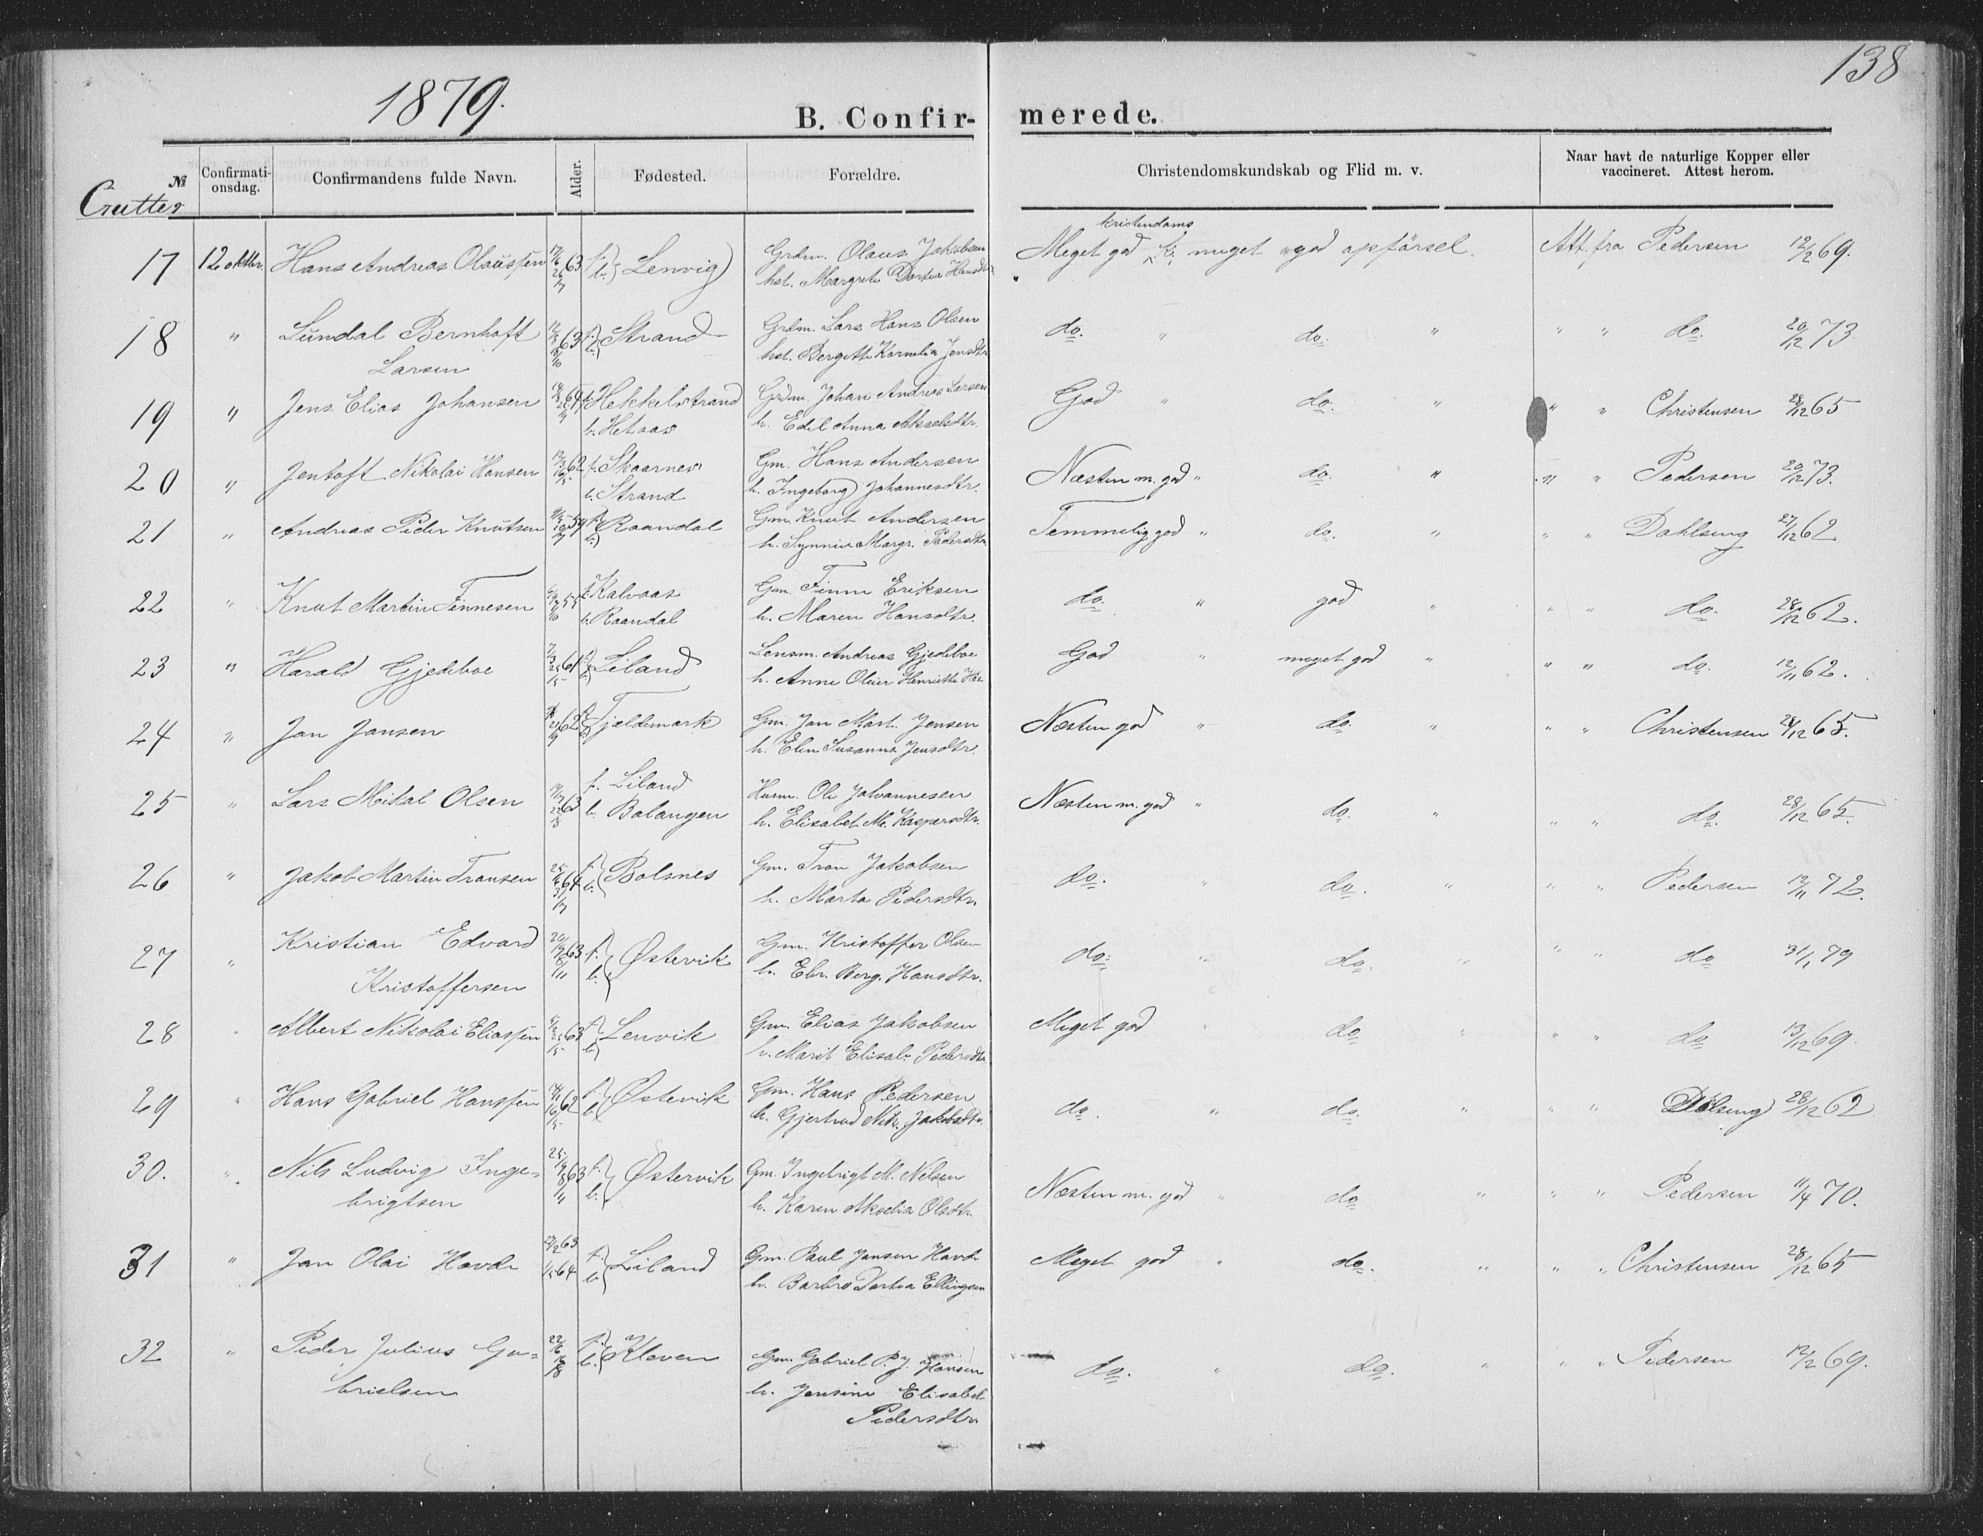 1879.
138
B. Confirmerede.
№ Confirmationsdag. Confirmandens fulde Navn. Alder. Fødested. Forældre. Christendomskundskab og Flid m. v. Naar havt de naturlige Kopper eller vaccineret. Attest herom.
Gutter
17 12 oktbr. Hans Andreas Olaussen 63 f. b. Lenvig Grdm. Olaus Jakobsen Meget god kristendoms k. meget god opførsel. Att. fra Pedersen 12/2 69.
hst. Margrete Dortea Hansdtr
18 " Lundal Bernhoft 63 f. b. Strand Grdm. Lars Hans Olsen do. " do. " " " do. 20/12 73.
Larsen hst. Bergitte Kornelia Jensdtr
19 " Jens Elias Johansen 64 f. Hekkelstrand Grdm. Johan Andreas Larsen God " do. " " " Christensen 28/12 65
b. Hetaas h. Edel Anna Akselsdtr.
20 " Jentoft Nikolai Hansen 62 f. Skaarnes Gm. Hans Andersen Næsten m. god " do. " " " Pedersen 20/12 73.
b. Strand h. Ingeborg Johannesdtr.
21 " Andreas Peder Knutsen 59 f. b. Raandal Gm. Knut Andersen Temmelig god " do. " " " Dahlseng 27/12 62
h. Synniva Margr. Pedersdtr.
22 " Knut Martin Finnesen 55 f. Kalvaas Gm. Finn Eriksen do. " god " " " do. 28/12 62.
b. Raandal h. Maren Hansdtr.
23 " Harald Gjedeboe 61 f. b. Liland Lensm. Andreas Gjedeboe God meget god " " " do. 12/11 62.
h. Anne Oline Henriette
24 " Jan Jansen 62 f. b. Fjeldemark Gm. Jan Mart. Jensen Næsten god " do. " " " Christensen 28/12 65.
h. Elen Susanna Jensdtr.
25 " Lars Mikal Olsen 63 f. Liland Husm. Ole Johannesen Næsten m. god " do. " " " do. 28/12 65.
b. Balangen h. Elisabet M. Kaspersdtr.
26 " Jakob Martin Tronsen 64 f. b. Bolsnes Gm. Tron Jakobsen do. " do. " " " Pedersen 12/11 72.
h. Marta Pedersdtr.
27 " Kristian Edvard 63 f. b. Østervik Gm. Kristoffer Olsen do. " do. " " " do 31/1 79
Kristoffersen h. Ebr. Berg. Hansdtr.
28 " Albert Nikolai Eliassen 63 f. b. Lenvik Gm. Elias Jakobsen Meget god " do " " " do 13/12 69.
h. Marit Elisab. Pedersdtr.
29 " Hans Gabriel Hanssen 62 f. b. Østervik Gm. Hans Pedersen do. " do. " " " Dalseng 28/12 62
h. Gjertrud Mtr. Jakobsdtr.
30. " Nils Ludvig Inge- 63 f. b. Østervik Gm. Ingebrigt M. Nilsen Næsten m. god " do " " " Pedersen 11/4 70.
brigtsen h. Karen Akselia Olsdtr.
31 " Jan Olai Hovde 27/2 63 f. b. Liland Gm. Paul Jansen Hovde Meget god " do. " " " Christensen 28/12 65
64 h. Barbro Dortea Ellingsen
32 " Peder Julius Ga- 22/6 f. b. Kleven Gm. Gabriel P. J. Hansen do. " do. " " " Pedersen 12/2 69.
brielsen h. Jensine Elisabet
Pedersdtr.